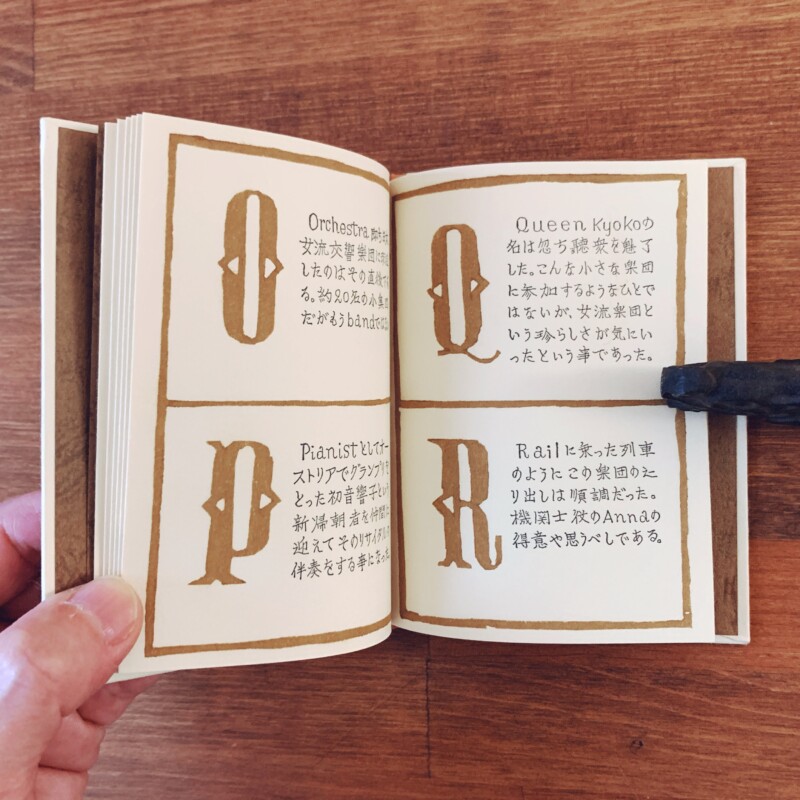 O
Orchestra 即ち
女流交響楽団に
したのはその直後で
る。約20名の小集団
だがもうbandでは
P
Pianistとしてオー
ストリアでグランプリを
とった初音響子という
新帰朝者を仲間に
迎えてそのリサイタルの
伴奏をする事になった
Q
Queen Kyokoの
名は忽ち聴衆を魅了
した。こんな小さな楽団
に参加するようなひとで
はないが、女流楽団と
いう珍らしさが気にい
ったという事であった。
R
Railに乗った列車
のようにこの楽団の辷
り出しは順調だった。
機関士役のAnnaの
得意や思うべしである。